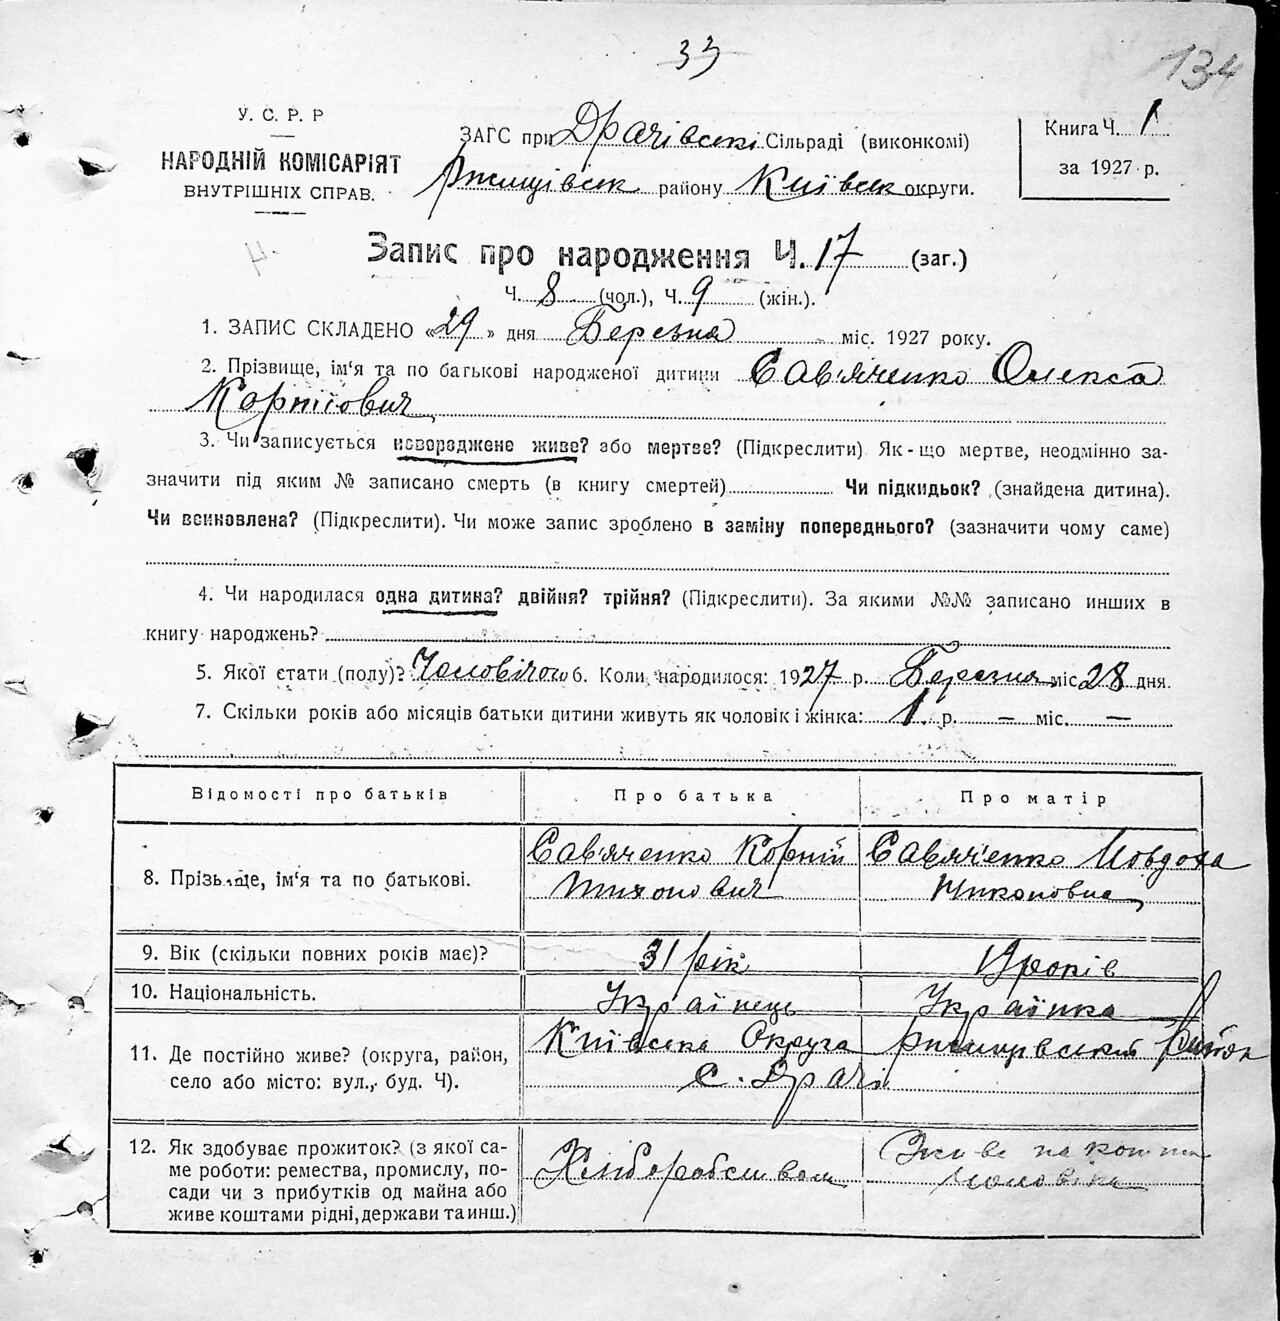 33
134
У. С. Р. Р
НАРОДНІЙ КОМІСАРІЯТ
ВНУТРІШНІХ СПРАВ.
ЗАГС при Драчівські Сільраді (виконкомі)
Ржищівськ району Київськ округи.
Книга Ч. 1
за 1927 р.
Запис про народження Ч. 17 (заг.)
Ч. 8 (чол.), Ч. 9 (жін.).
1. ЗАПИС СКЛАДЕНО «29» дня Березня міс. 1927 року.
2. Прізвище, ім'я та по батькові народженої дитини Савяченко Олекса
Корнійович
3. Чи записується новороджене живе? або мертве? (Підкреслити) Як-що мертве, неодмінно за-
значити під яким № записано смерть (в книгу смертей) Чи підкидьок? (знайдена дитина).
Чи всиновлена? (Підкреслити). Чи може запис зроблено в заміну попереднього? (зазначити чому саме)
4. Чи народилася одна дитина? двійня? трійня? (Підкреслити). За якими №№ записано инших в
книгу народжень?
5. Якої стати (полу)? Чоловічої 6. Коли народилося: 1927 р. Березня міс 28 дня.
7. Скільки років або місяців батьки дитини живуть як чоловік і жінка: 1 р. — міс. —
Відомості про батьків Про батька Про матір
8. Прізвище, ім'я та по батькові.
Савяченко Корній
Тихонович
Савяченко Мовдоха
Никоновна
9. Вік (скільки повних років має)? 31 рік 19 років
10. Національність. Українець Українка
11. Де постійно живе? (округа, район,
село або місто: вул., буд. Ч).
Київська Округа Ржищівський район
с. Драчі
12. Як здобуває прожиток? (з якої са-
ме роботи: ремества, промислу, по-
сади чи з прибутків од майна або
живе коштами рідні, держави та инш.)
Хліборобством
Живе на кошти
чоловіка